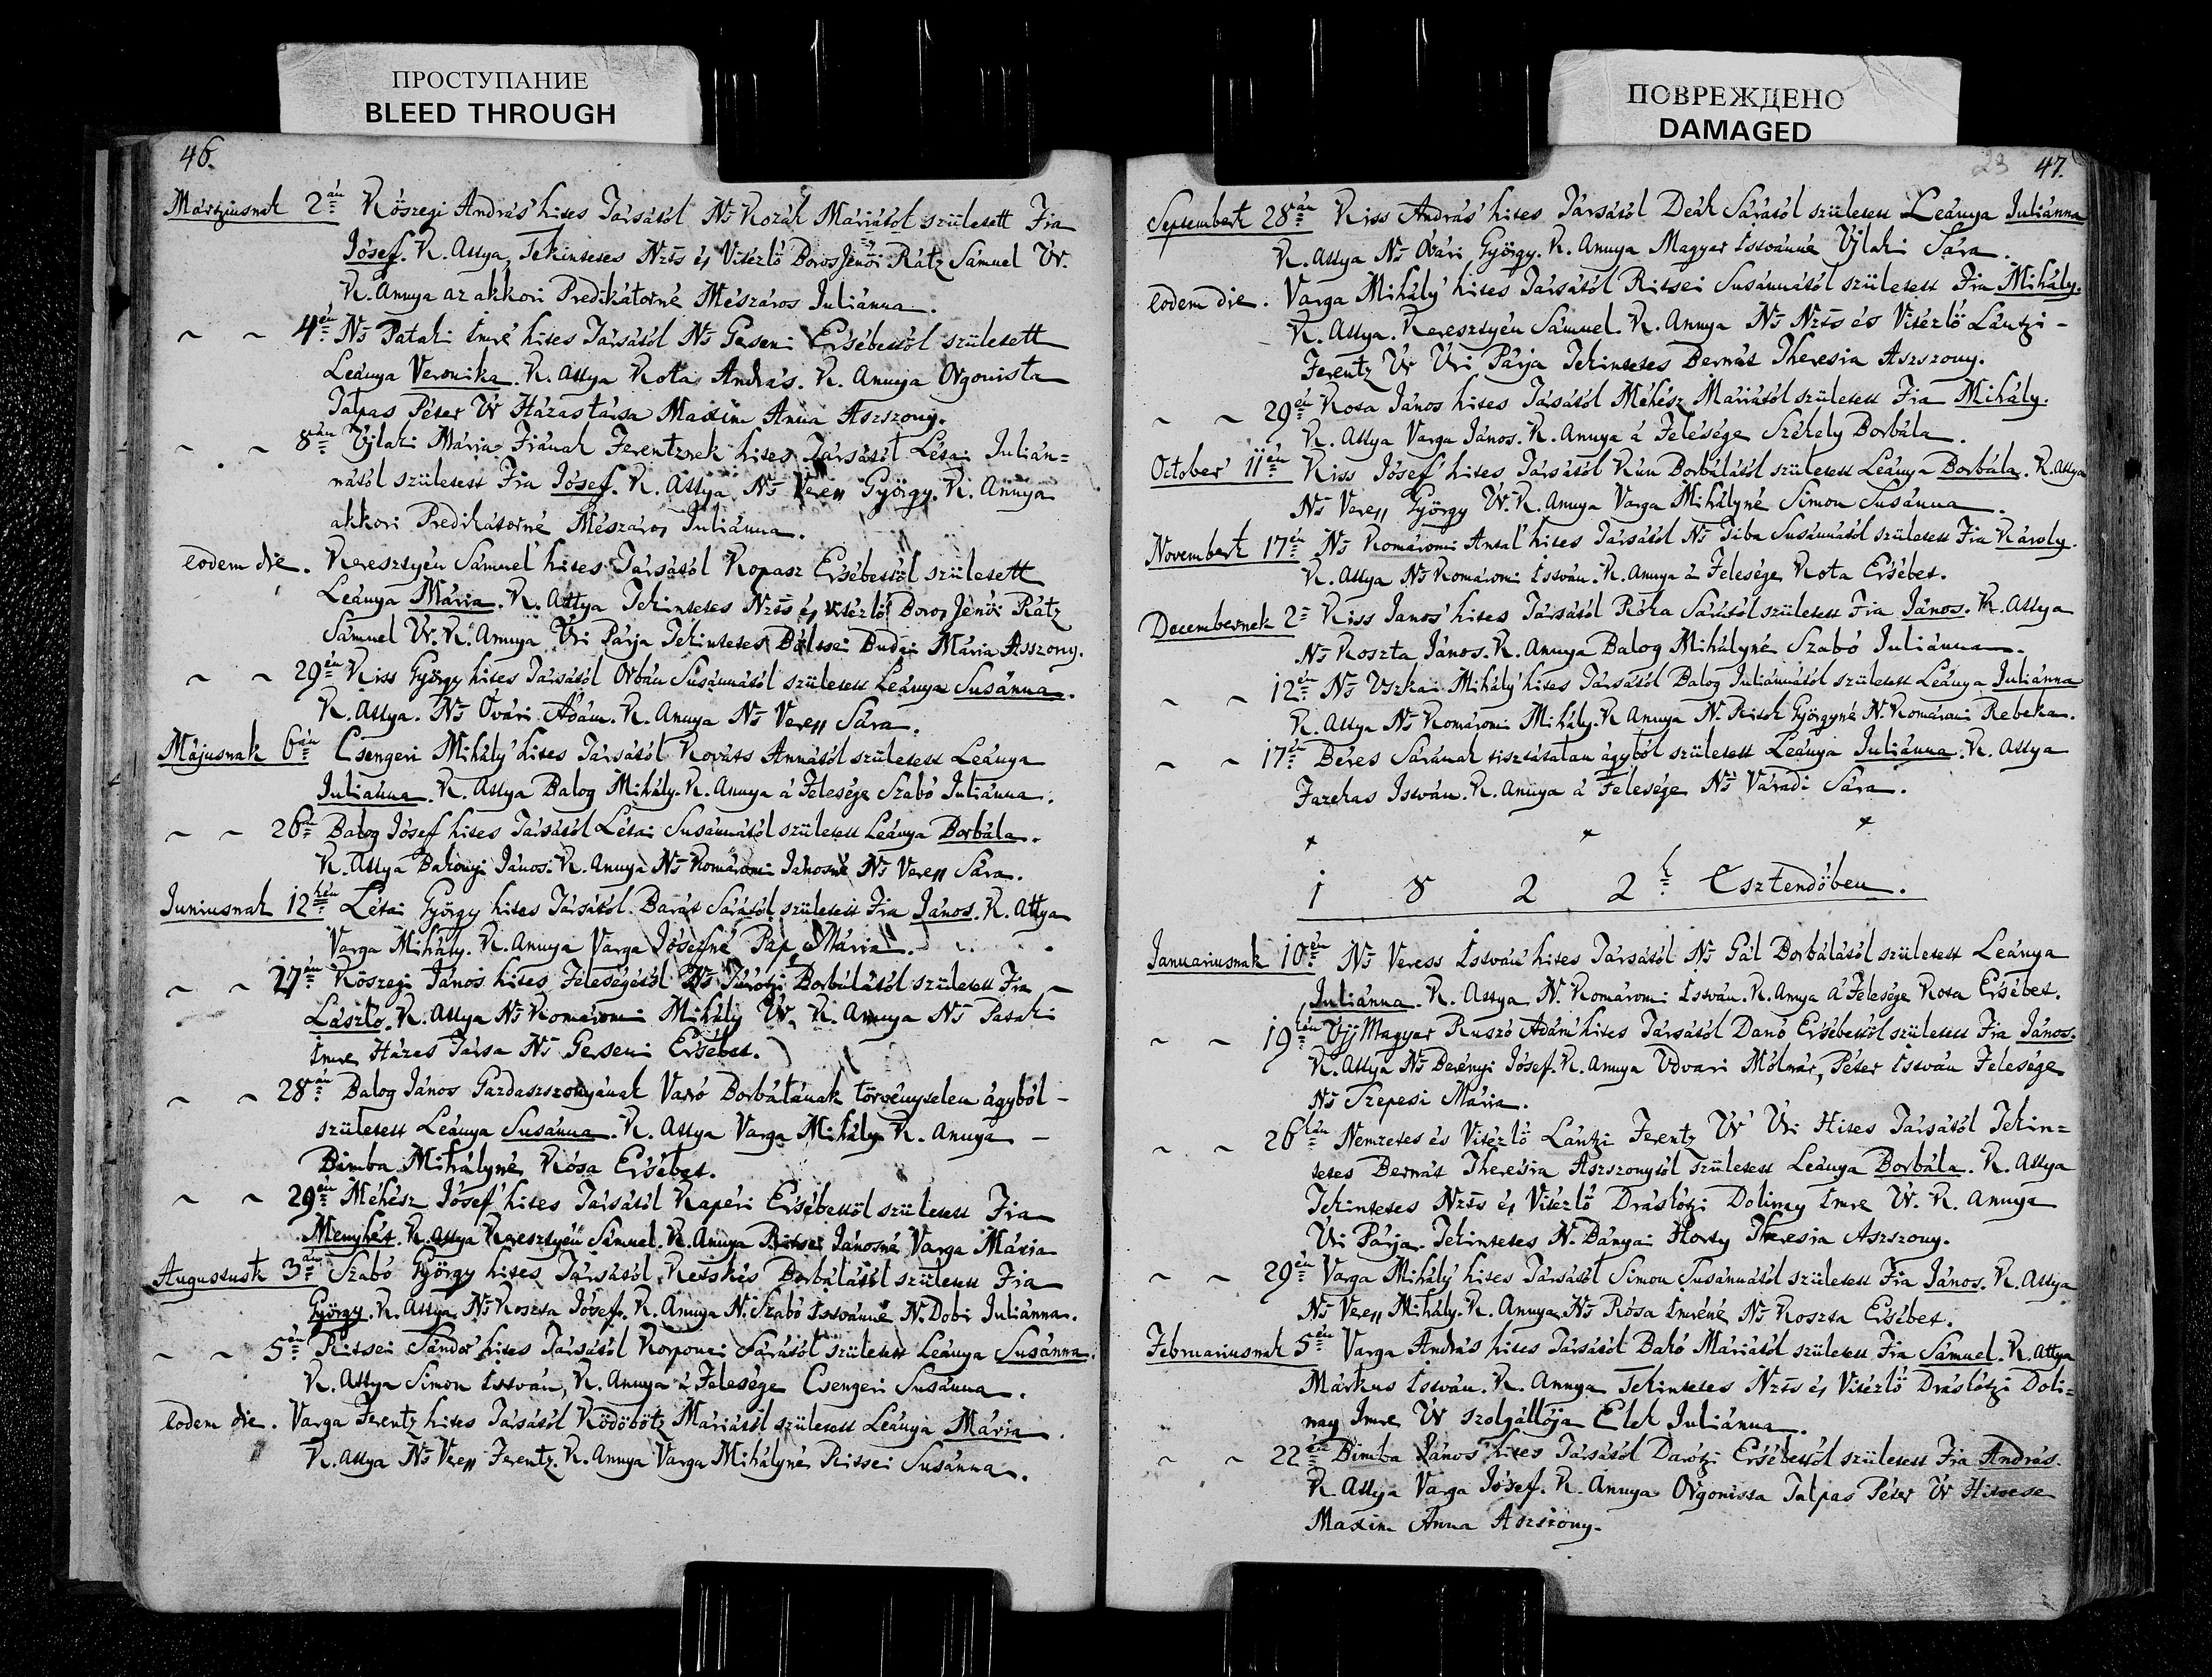 ПРОСТУПАНИЕ
BLEED THROUGH
46.
Mártziusnak 2án Kőszegi András' hites Társától Ns Kozák Máriától született Fia
Jósef. K. Attya, Tekintetes Nzts és Vitézlő Boros Jenői Rátz Sámuel Úr.
K. Annya az akkori Predikátorné Mészáros Juliánna.
~ ~ 4én Ns Pataki Imre' hites Társától Ns Geseni Ersébettől született
Leánya Veronika. K. Attya Kota András. K. Annya Orgonista
Talpas Péter Úr Házastársa Maxim Anna Aszszony.
~ ~ 8án Ujlaki Mária Fiának Ferentznek hites Társától Létai Julián=
nától született Fia Jósef. K. Attya Ns Veress György. K. Annya
akkori Predikátorné Mészáros Juliánna.
eodem die. Keresztyén Sámuel' hites Társától Kopasz Ersébettől született
Leánya Mária. K. Attya Tekintetes Nzts és vitézlő Boros Jenői Rátz
Sámuel Úr. K. Annya Úri Párja Tekintetes Böltsei Budai Mária Asszony.
~ ~ 29én Kiss György hites Társától Orbán Susánnától született Leánya Susánna.
K. Attya. Ns Óvári Ádám. K. Annya Ns Veress Sára.
Májusnak 6án Csengeri Mihály' hites Társától Kováts Annától született Leánya
Juliánna. K. Attya Balog Mihály. K. Annya á Felesége Szabó Juliánna.
~ ~ 26án Balog Jósef hites Társától Létai Susánnától született Leánya Borbála.
K. Attya Bakonyi János. K. Annya Ns Komáromi Jánosné Ns Veress Sára.
Juniusnak 12kén Létai György hites Társától Barát Sárától született Fia János. K. Attya
Varga Mihály. K. Annya Varga Jósefné Pap Mária.
~ ~ 27én Kőszegi János hites Feleségétől Ns Túrótzi Borbálától született Fia
László. K. Attya Ns Komáromi Mihály Úr. K. Annya Ns Pataki
Imre Házas Társa Ns Geseni Ersébet.
~ ~ 28án Balog János Gazdaszszonyának Varró Borbálának törvénytelen ágyból -
született Leánya Susánna. K. Attya Varga Mihály K. Annya -
Bimba Mihályné Rósa Ersébet.
~ ~ 29én Méhész Jósef' hites Társától Kapéri Ersébettől született Fia
Menyhért. K. Attya Keresztyén Sámuel. K. Annya Ritsei Jánosné Varga Mária
Augustusk 3án Szabó György hites Társától Ketskés Borbálától született Fia
György. K. Attya Ns Koszta Jósef. K. Annya N. Szabó Istvánné N. Dobi Juliánna.
~ ~ 5én Ritsei Sándor hites Társától Korponei Sárától született Leánya Susánna.
K. Attya Simon István, K. Annya á Felesége Csengeri Susánna.
Eodem die. Varga Ferentz hites Társától Ködöbötz Máriától született Leánya Mária.
K. Attya Ns Veress Ferentz. K. Annya Varga Mihályné Ritsei Susánna.
ПОВРЕЖДЕНО
DAMAGED
23 47.
Septemberk 28án Kiss András' hites Társától Deák Sárától született Leánya Juliánna
K. Attya Ns Óvári György. K. Annya Magyar Istvánné Ujlaki Sára.
eodem die. Varga Mihály' hites Társától Ritsei Susánnától született Fia Mihály.
K. Attya. Keresztyén Sámuel. K. Annya Ns Nzts és Vitézlő Lántzi -
Ferentz Úr Úri Párja Tekintetes Bernát Theresia Aszszony.
~ ~ 29én Kosa János hites Társától Méhész Máriától született Fia Mihály.
K. Attya Varga János. K. Annya á Felesége Székely Borbála.
October' 11én Kiss Jósef' hites Társától Kún Borbálától született Leánya Borbála. K. Attya
Ns Veress György Úr. K. Annya Varga Mihályné Simon Susánna.
Novemberk 17én Ns Komáromi Antal' hites Társától Ns Tiba Susánnától született Fia Károly.
K. Attya Ns Komáromi István. K. Annya á Felesége Kota Ersébet.
Decembernek 2 Kiss János' hites Társától Róka Sárától született Fia János. K. Attya
Ns Koszta János. K. Annya Balog Mihályné Szabó Juliánna.
~ ~ 12én Ns Uszkai Mihály' hites Társától Balog Juliánnától született Leánya Juliánna
K. Attya Ns Komáromi Mihály. K. Annya N. Ritok Györgyné N. Komáromi Rebeka.
~ ~ 17én Béres Sárának tisztátatan ágyból született Leánya Juliánna. K. Attya
Fazekas István. K. Annya á Felesége Ns Váradi Sára.
1 8 2 2k Esztendőben.
Januariusnak 10én Ns Veress István' hites Társától Ns Gál Borbálától született Leánya
Juliánna. K. Attya N. Komáromi István. K. Anya á Felesége Kota Ersébet.
~ ~ 19kén Ujj Magyar Ruszó Ádám' hites Társától Danó Ersébettől született Fia János.
K. Attya Ns Berényi Jósef. K. Annya Udvari Mólnár, Péter István Felesége
Ns Szepesi Mária.
~ ~ 26kán Nemzetes és Vitézlő Lántzi Ferentz Úr Úri Hites Társától Tekin=
tetes Bernát Therésia Aszszonytól született Leánya Borbála. K. Attya
Tekintetes Nzts és Vitézlő Draskótzi Dolinay Imre Úr. K. Annya
Úri Párja. Tekintetes N. Bányai Horty Theresia Aszszony.
~ ~ 29én Varga Mihály' hites Társától Simon Susánnától született Fia János. K. Attya
Ns Veress Mihály. K. Annya. Ns Rósa Imréné Ns Koszta Ersébet.
Februariusnak 5én Varga András hites Társától Bakó Máriától született Fia Sámuel. K. Attya
Márkus István. K. Annya Tekintetes Nzts és Vitézlő Draskótzi Doli=
nay Imre Úr szolgállója Elek Juliánna.
~ ~ 22én Bimba János' hites Társától Darótzi Ersébettől született Fia András.
K. Attya Varga Jósef. K. Annya Orgonista Talpas Péter Úr Hitvese
Maxim Anna Aszszony.